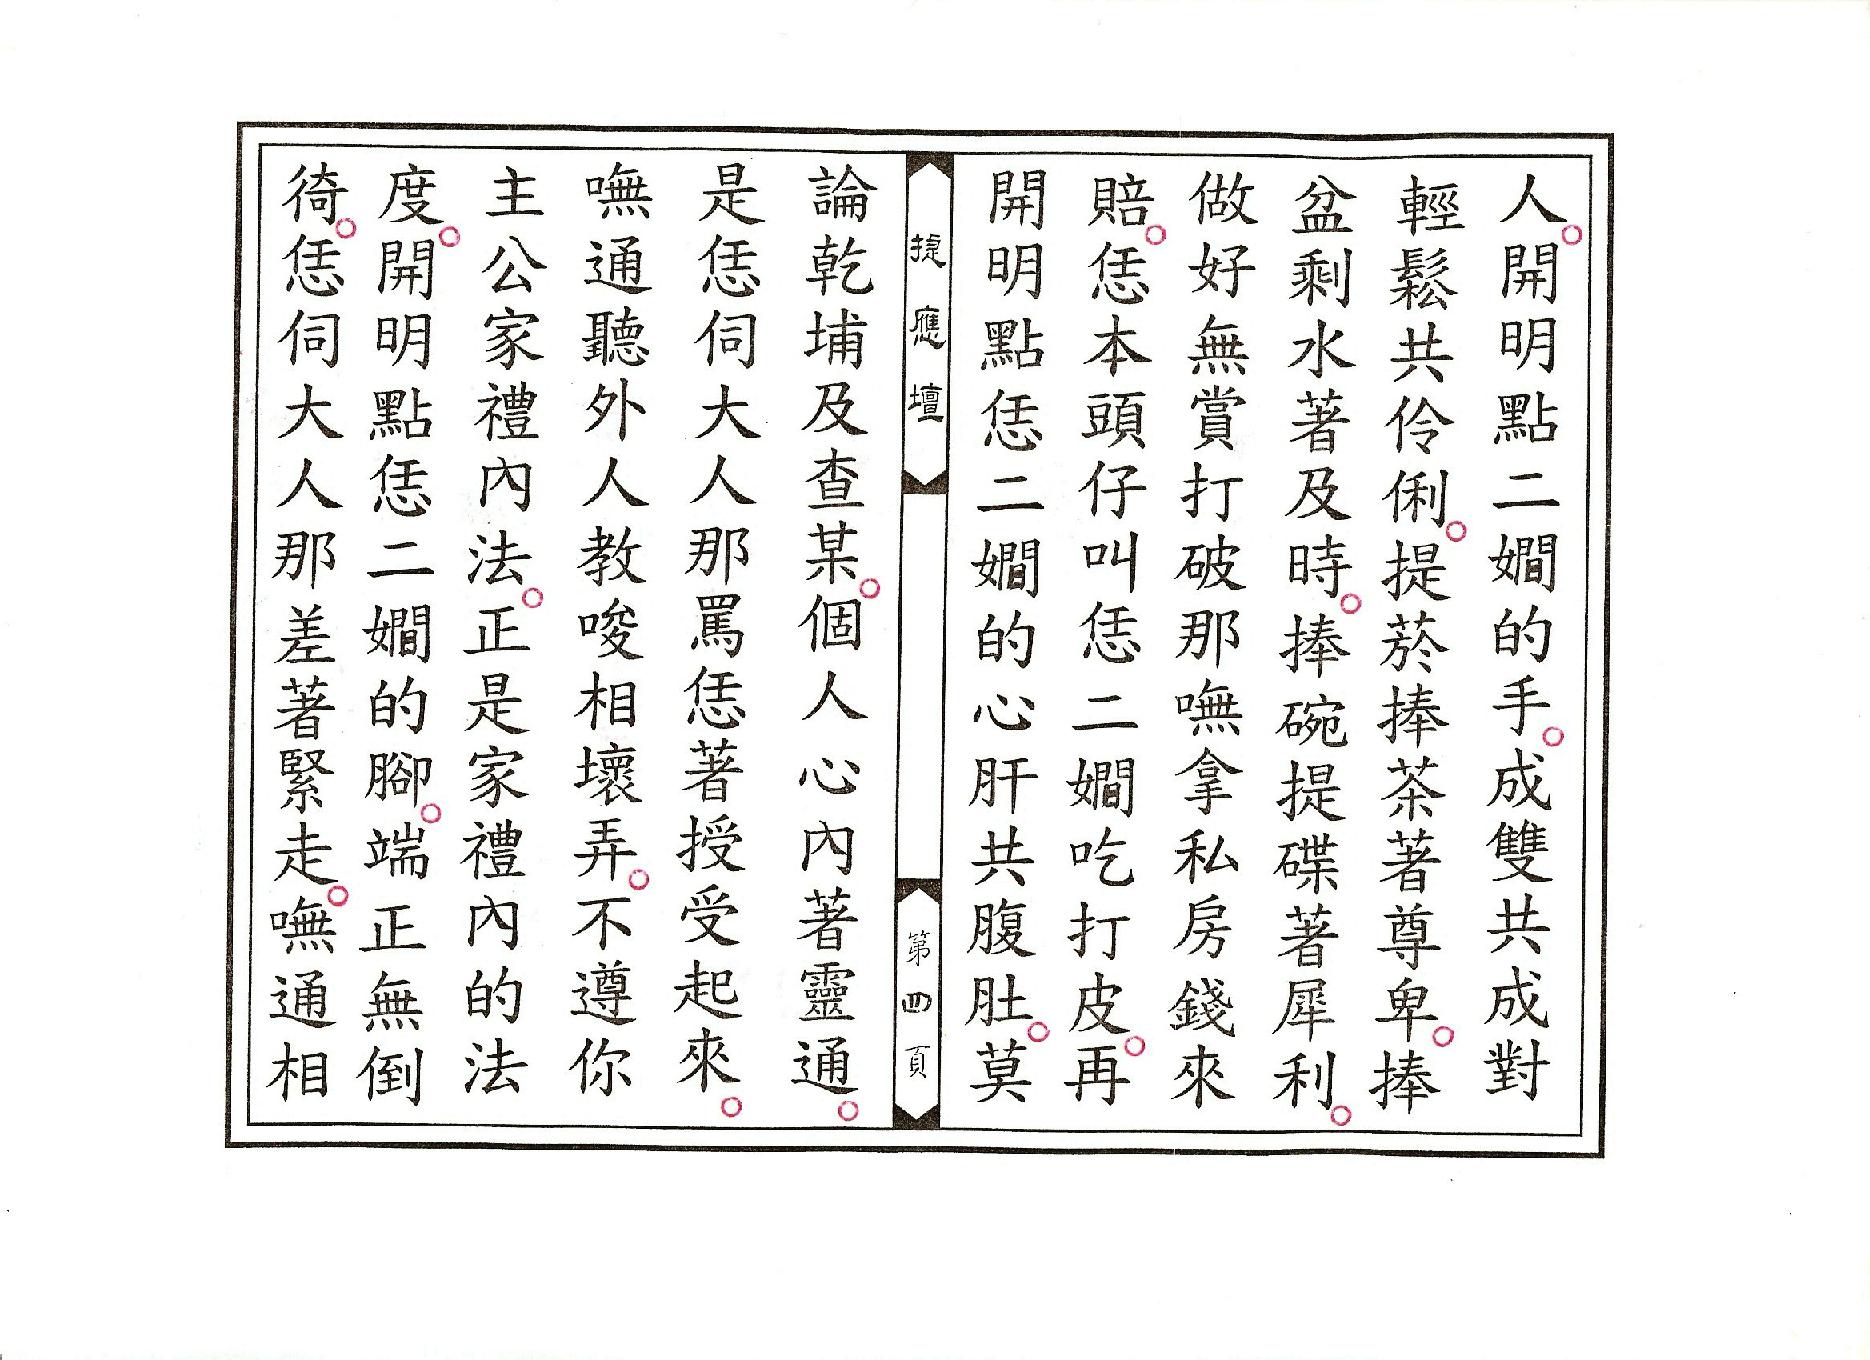 人。開明點二嫺的手。成雙共成對
輕鬆共伶俐。提菸捧茶著尊卑。捧
盆剩水著及時。捧碗提碟著犀利。
做好無賞打破那嘸拿私房錢來
賠。恁本頭仔叫恁二嫺吃打皮。再
開明點恁二嫺的心肝共腹肚。莫
捷應壇
第四頁
論乾埔及查某。個人心內著靈通。
是恁伺大人那罵恁著授受起來。
嘸通聽外人教唆相壞弄。不遵你
主公家禮內法。正是家禮內的法
度。開明點恁二嫺的腳。端正無倒
徛。恁伺大人那差著緊走。嘸通相